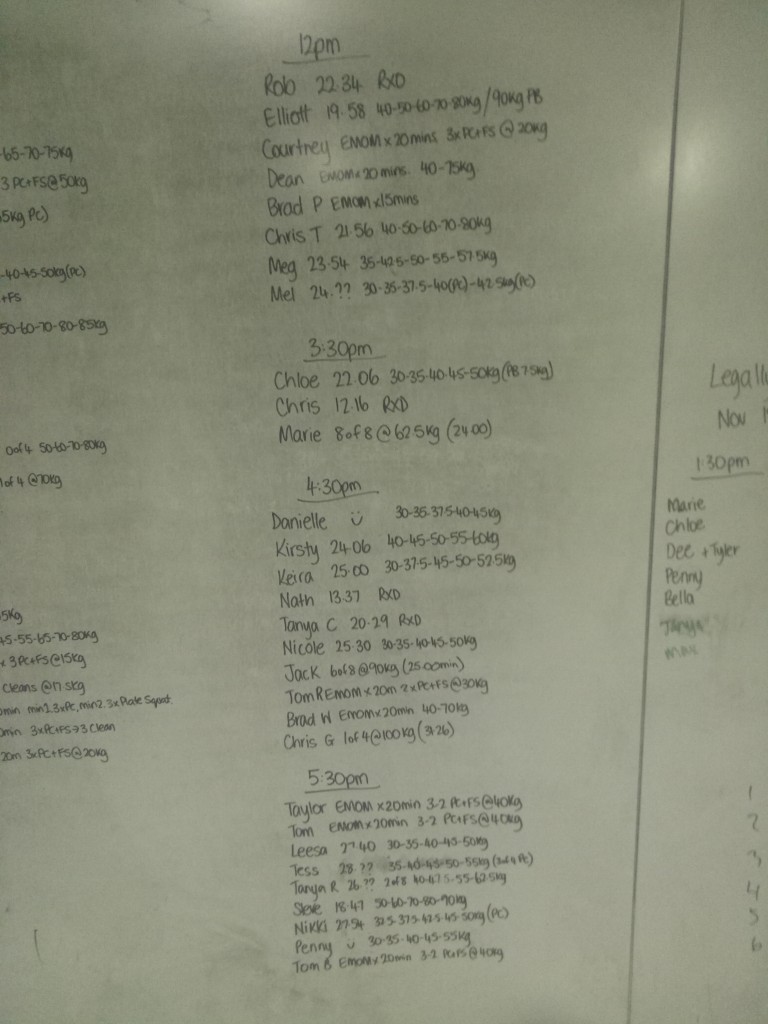 -65-70-75kg
3 PC+FS@50kg
5kg PC)
-40-45-50kg(PC)
+FS
50-60-70-80-85kg
0of4 50-60-70-80kg
1of4 @70kg
5kg
45-55-65-70-80kg
x 3PC+FS@15kg
cleans @17.5kg
min min1.3xPC, min2.3xPlate Squat
min 3xPC+FS→3 Clean
20m 3xPC+FS@20kg
12pm
Rob 22.34 RXD
Elliott 19.58 40-50-60-70-80kg/90kg PB
Courtney EMOM x 20mins 3xPC+FS @ 20kg
Dean EMOM x 20mins. 40-75kg
Brad P EMOM x15mins
Chris T 21.56 40-50-60-70-80kg
Meg 23.54 35-42.5-50-55-57.5kg
Mel 24.?? 30-35-37.5-40(PC)-42.5kg(PC)
3:30pm
Chloe 22.06 30-35-40-45-50kg(PB 7.5kg)
Chris 12.16 RXD
Marie 8of8@62.5kg (24.00)
4:30pm
Danielle ü 30-35-37.5-40-45kg
Kirsty 24.06 40-45-50-55-60kg
Keira 25.00 30-37.5-45-50-52.5kg
Nath 13.37 RXD
Tanya C 20.29 RXD
Nicole 25.30 30-35-40-45-50kg
Jack 6of8@90kg (25.00min)
Tom R EMOM x20m 2xPC+FS@30kg
Brad W EMOM x 20min 40-70kg
Chris G 1of4@100kg (31.26)
5:30pm
Taylor EMOM x20min 3-2 PC+FS@40kg
Tom EMOM x 20min 3-2 PC+FS@40kg
Leesa 27.40 30-35-40-45-50kg
Tess 28.?? 35-40-45-50-55kg (3of4 PC)
Tanya R 26.?? 2of8 40-47.5-55-62.5kg
Steve 18.47 50-60-70-80-90kg
Nikki 27.54 32.5-37.5-42.5-45-50kg(PC)
Penny ü 30-35-40-45-55kg
Tom B EMOM x 20min 3-2 PC+FS@40kg
Legally
Nov
1:30pm
Marie
Chloe
Dee + Tyler
Penny
Bella
Tanya
Max
1
2
3
4
5
6